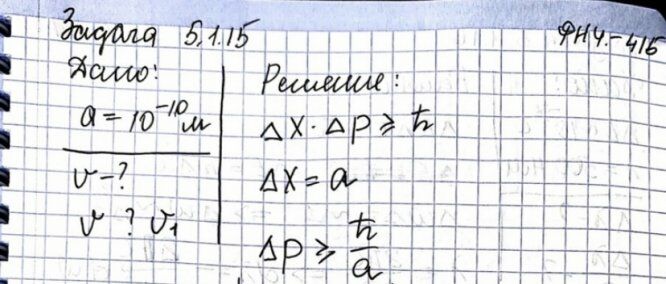 Задача 5.1.15
ФНЧ-415
Дано:
a = 10⁻¹⁰ м
v - ?
v ? v₁
Решение:
Δx · Δp ⩾ ħ
Δx = a
Δp ⩾ ħ/a